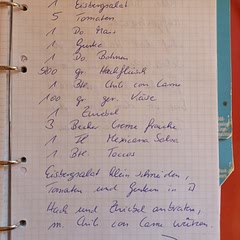 1 Eisbergsalat
5 Tomaten
1 Do. Mais
1 Gurke
1 Do Bohnen
500 gr. Hackfleisch
1 Btl. Chili con Carne
100 gr. ger. Käse
1 Zwiebel
3 Becher Creme fraiche
1 Gl. Mexicana Salsa
1 Btl. Tacos
Eisbergsalat klein schneiden,
Tomaten und Gurken in
Hack und Zwiebel anbraten,
m. Chili con Carne würzen.